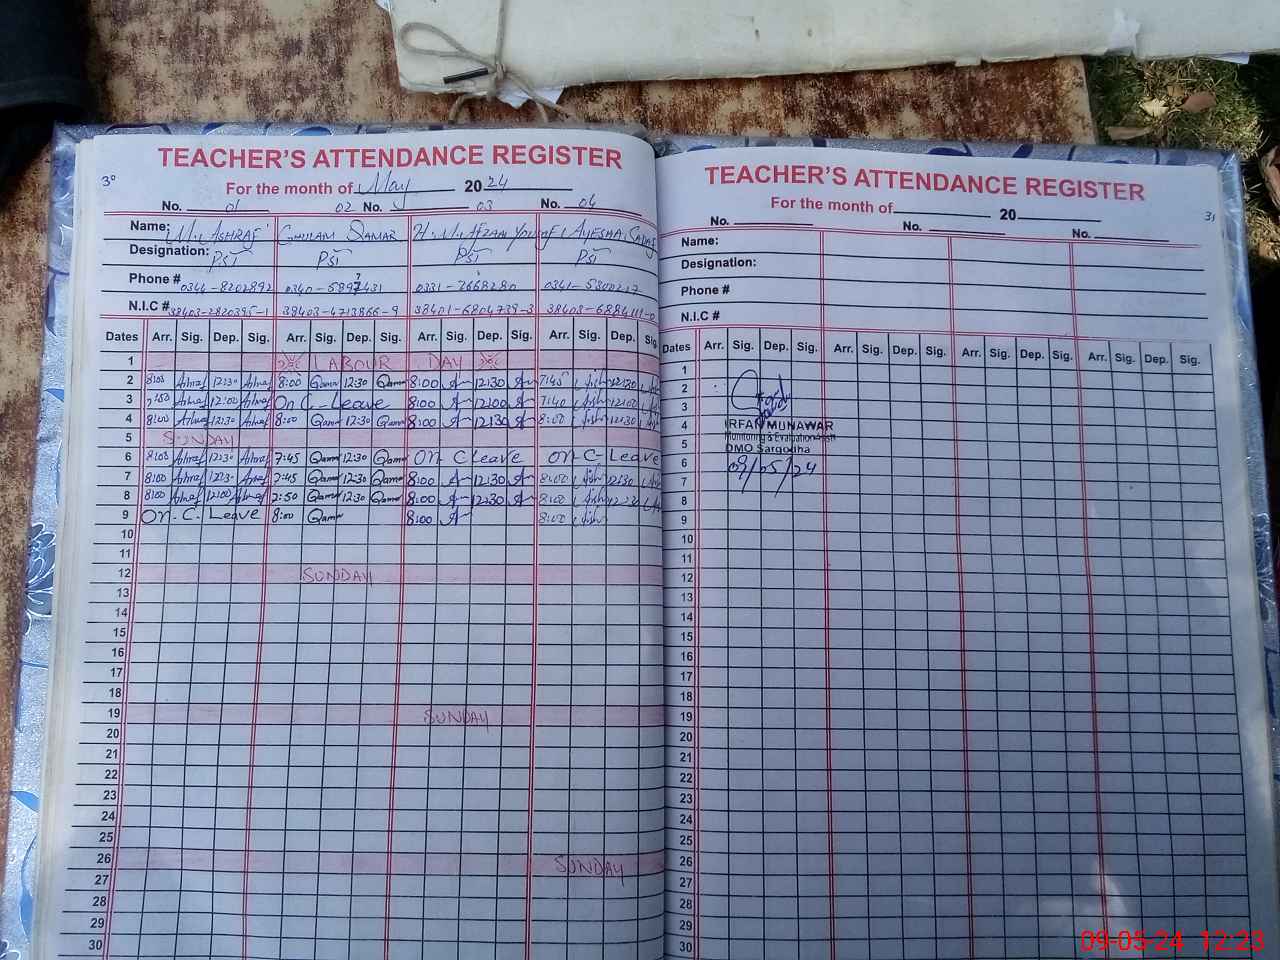 TEACHER'S ATTENDANCE REGISTER
30
For the month of May 2024
No. 01 02 No. 03 No. 04
Name: M. ASHRAF GHULAM QAMAR H. M. AFZAAL YOUSAF AYESHA
Designation: PST PST PST PST
Phone # 0344-8202892 0331-7668280
N.I.C # 38403-2820395-1 38403-4713866-9 38401-6804739-3
Dates Arr. Sig. Dep. Sig. Arr. Sig. Dep. Sig. Arr. Sig. Dep. Sig. Arr. Sig. Dep. Sig.
1 LABOUR DAY
2 8:00 Ashraf 12:30 Ashraf 8:00 Qamar 12:30 Qamar 8:00 12:30 7:45 12:30
3 7:50 Ashraf 12:00 Ashraf On C. Leave 8:00 12:00 7:40 12:00
4 8:00 Ashraf 12:30 Ashraf 8:00 Qamar 12:30 Qamar 8:00 12:30 8:00 12:30
5 SUNDAY
6 8:00 Ashraf 12:30 Ashraf 7:45 Qamar 12:30 Qamar On C Leave On C. Leave
7 8:00 Ashraf 12:30 Ashraf 7:45 Qamar 12:30 Qamar 8:00 12:30 8:00 12:30
8 8:00 Ashraf 12:00 Ashraf 2:50 Qamar 12:30 Qamar 8:00 12:30 8:00 12:30
9 On. C. Leave 8:00 Qamar 8:00 8:00
10
11
12 SUNDAY
13
14
15
16
17
18
19 SUNDAY
20
21
22
23
24
25
26 SUNDAY
27
28
29
30
TEACHER'S ATTENDANCE REGISTER
31
For the month of 20
No. No. No.
Name:
Designation:
Phone #
N.I.C #
Dates Arr. Sig. Dep. Sig. Arr. Sig. Dep. Sig. Arr. Sig. Dep. Sig. Arr. Sig. Dep. Sig.
1
2
3
4 IRFAN MUNAWAR
5 Monitoring & Evaluation Asstt
DMO Sargodha
6 09/05/24
7
8
9
10
11
12
13
14
15
16
17
18
19
20
21
22
23
24
25
26
27
28
29
30
09-05-24 12:23